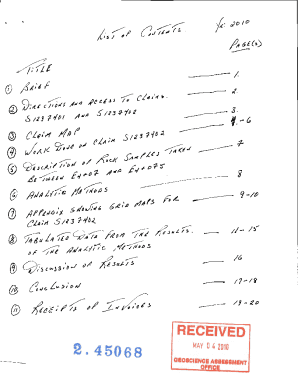 List of Contents Yr. 2010
Page(s)
Title
① Brief 1.
② Directions and access to Claims. 2.
S1237401 and S1237402
③ Claim Map 3.
④ Work Done on Claim S1237402 4-6
⑤ Description of Rock Samples Taken 7
Between E4007 and E4007S
⑥ Analytic Methods 8
⑦ Appendix showing Grid Maps for 9-10
Claim S1237402
⑧ Tabulated Data from the Results. 11-15
of the Analytic Methods
⑨ Discussion of Results 16
⑩ Conclusion 17-18
⑪ Receipts of Invoices 19-20
2.45068
RECEIVED
MAY 04 2010
GEOSCIENCE ASSESSMENT
OFFICE